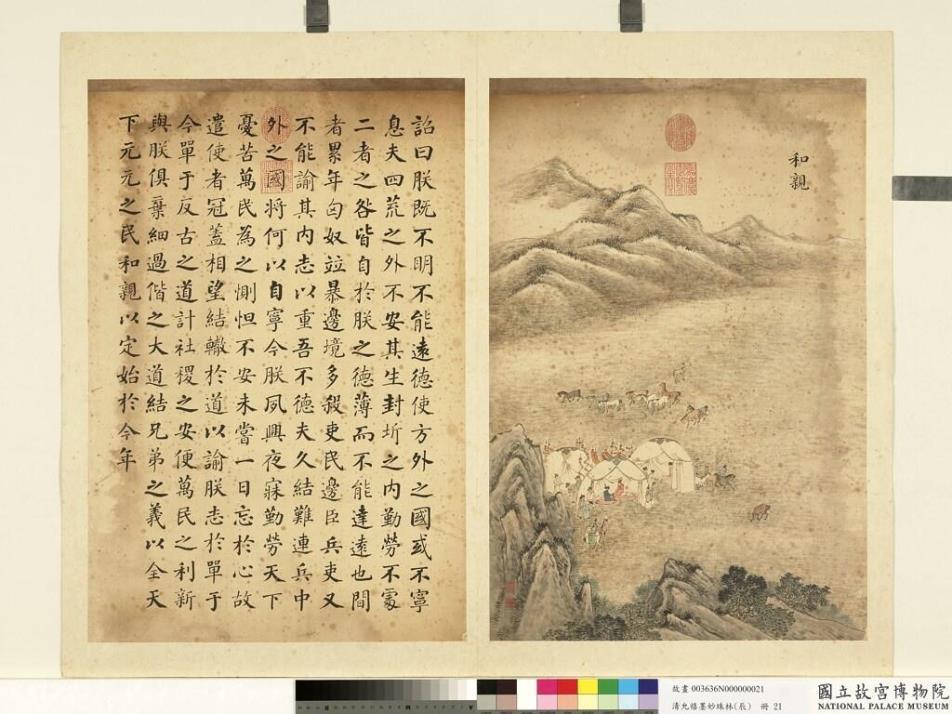 和親
詔曰朕既不明不能遠德使方外之國或不寧
息夫四荒之外不安其生封圻之內勤勞不處
二者之咎皆自於朕之德薄而不能達遠也間
者累年匈奴竝暴邊境多殺吏民邊臣兵吏又
不能諭其內志以重吾不德夫久結難連兵中
外之國將何以自寧今朕夙興夜寐勤勞天下
憂苦萬民為之惻怛不安未嘗一日忘於心故
遣使者冠蓋相望結轍於道以諭朕志於單于
今單于反古之道計社稷之安便萬民之利新
與朕俱棄細過偕之大道結兄弟之義以全天
下元元之民和親以定始於今年
故畫 003636N000000021
清允禧墨妙珠林(辰) 冊 21
國立故宮博物院
NATIONAL PALACE MUSEUM